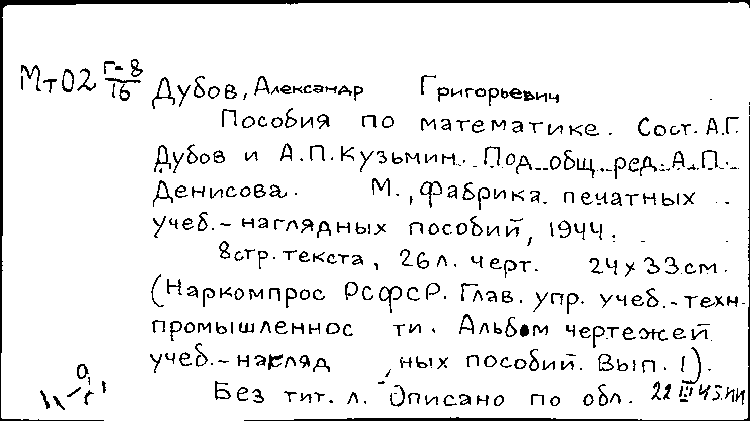 Мт02 Г-8/16 Дубов, Александр Григорьевич
Пособия по математике. Сост. А.Г.
Дубов и А.П. Кузьмин. Под общ. ред. А.П.
Денисова. М., Фабрика печатных
учеб.-наглядных пособий, 1944.
8 стр. текста, 26 л. черт. 24 х 33 см.
(Наркомпрос РСФСР. Глав. упр. учеб.-техн.
промышленнос ти. Альбом чертежей
учеб.-нагляд ных пособий. Вып. 1).
Без тит. л. Описано по обл. 22 III 45.